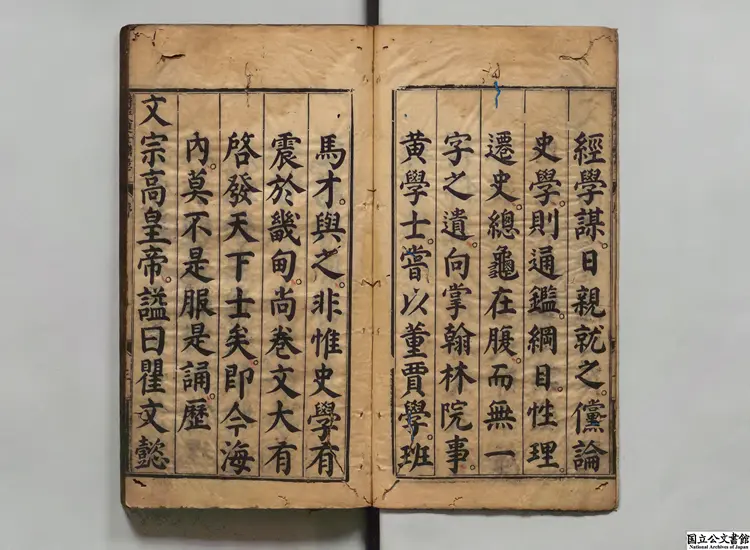 經學謀。日親就之。儻論
史學。則通鑑綱目。性理。
遷史。總龜在腹。而無一
字之遺。向掌翰林院事。
黃學士。嘗以董賈學。班
馬才。與之。非惟史學有
震於畿甸。尚卷文大有
啓發天下士矣。即今海
內。莫不是服是誦。歷
文宗高皇帝。謚曰瞿文懿
国立公文書館
National Archives of Japan